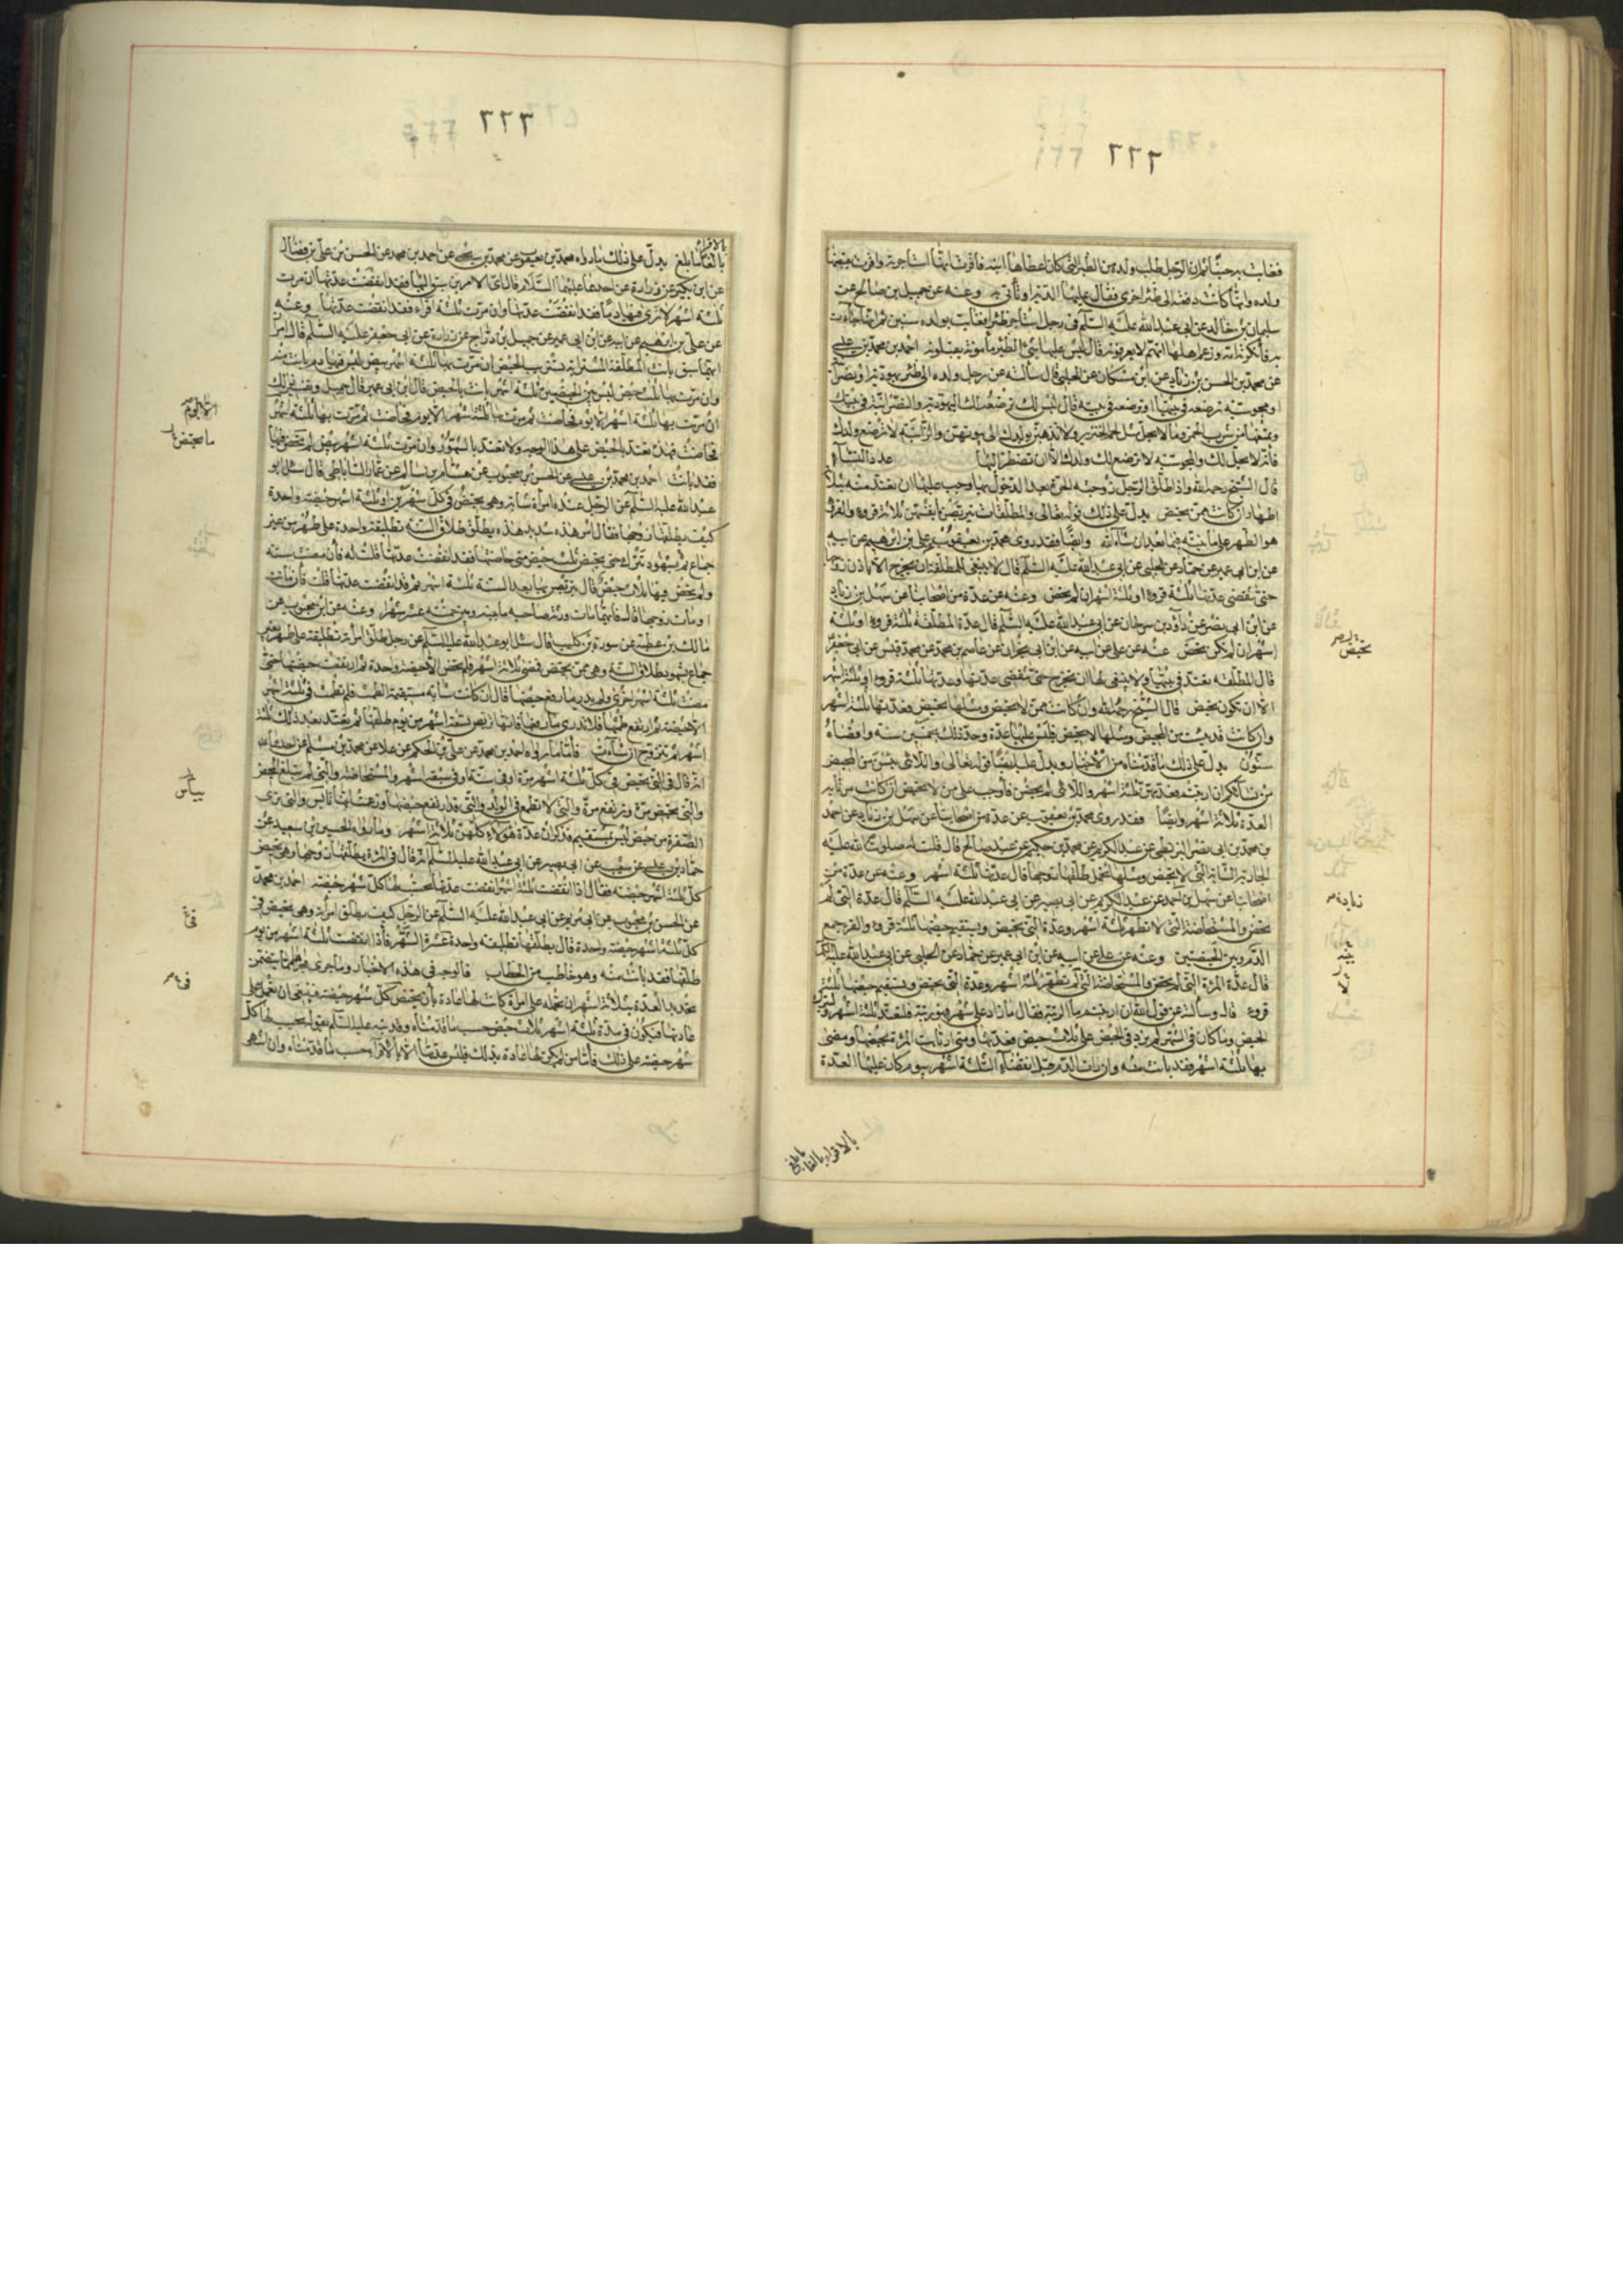 ٢٢٦
فغابت به حينا ثم ان الرجل طلب ولده من الظئر التي كان اعطاها ابنه فاقرت انها استاجرته واقرت بقبضها
ولده وانها كانت دفعته الى ظئر اخرى فقال عليها الدية او تأتي به وعنه عن جميل بن صالح عن
سليمان بن خالد عن ابي عبد الله عليه السلم في رجل استاجر ظئرا فغابت بولده سنين ثم انها جاءت
به فانكرته امه وزعم اهلها انهم لا يعرفونه قال ليس عليها شئ الظئر مأمونة يقبلونه احمد بن محمد بن عيسى
عن محمد بن الحسن بن زياد عن ابن مسكان عن الحلبي قال سألته عن رجل دفع ولده الى ظئر يهودية او نصرانية
او مجوسية ترضعه في بيتها او ترضعه في بيته قال ترضعه لك اليهودية والنصرانية في بيتك
وتمنعها من شرب الخمر وما لا يحل مثل لحم الخنزير ولا تذهبن بولدك الى بيوتهن والزانية لا ترضع ولدك
فانه لا يحل لك والمجوسية لا ترضع لك ولدك الا ان تضطر اليها عدد النساء
قال الشيخ رحمه الله واذا طلق الرجل زوجته الحرة بعد الدخول بها وجب عليها ان تعتد منه بثلاثة
اطهار ان كانت ممن تحيض يدل على ذلك قوله تعالى والمطلقات يتربصن بانفسهن ثلاثة قروء والقرء
هو الطهر على ما نبينه فيما بعد ان شآء الله وايضا فقد روى محمد بن يعقوب عن علي بن ابرهيم عن ابيه
عن ابن ابي عمير عن حماد عن الحلبي عن ابي عبد الله عليه السلم قال لا ينبغي للمطلقة ان تخرج الا باذن زوجها
حتى تنقضي عدتها ثلثة قروء او ثلثة اشهر ان لم تحض وعنه عن عدة من اصحابنا عن سهل بن زياد
عن ابن ابي نصر عن داود بن سرحان عن ابي عبد الله عليه السلم قال عدة المطلقة ثلثة قروء او ثلثة
اشهر ان لم تكن تحض عنه عن علي عن ابيه عن ابن ابي نجران عن عاصم بن حميد عن محمد بن قيس عن ابي جعفر
قال المطلقة تعتد في بيتها ولا ينبغي لها ان تخرج حتى تنقضي عدتها وعدتها ثلثة قروء او ثلثة اشهر
الا ان تكون تحيض قال الشيخ رحمه الله وان كانت ممن لا تحيض ومثلها تحيض فعدتها ثلثة اشهر
وان كانت قد يئست من المحيض ومثلها لا تحيض فليس عليها عدة وحد ذلك بخمسين سنة واقصاه
ستون يدل على ذلك ما قدمناه من الاخبار ويدل عليه ايضا قوله تعالى واللائي يئسن من المحيض
من نسآئكم ان ارتبتم فعدتهن ثلثة اشهر واللائي لم يحضن فاوجب على من لا تحيض ان كانت مرتابة
العدة ثلاثة اشهر وايضا فقد روى محمد بن يعقوب عن عدة من اصحابنا عن سهل بن زياد عن احمد
بن محمد بن ابي نصر البزنطي عن عبد الكريم عن محمد بن حكيم عن عبد صالح قال قلت له صلوات الله عليه
الجارية الشابة التي لا تحيض ومثلها تحمل طلقها زوجها قال عدتها ثلثة اشهر وعنه عن عدة من
اصحابنا عن سهل بن احمد عن عبد الكريم عن ابي بصير عن ابي عبد الله عليه السلم قال عدة التي لم
تحض والمستحاضة التي لا تطهر ثلثة اشهر وعدة التي تحيض ويستقيم حيضها ثلثة قروء والقرء جمع
الدم بين الحيضتين وعنه عن علي عن ابيه عن ابن ابي عمير عن حماد عن الحلبي عن ابي عبد الله عليه السلم
قال عدة المرأة التي لم تحض والمستحاضة التي لم تطهر ثلثة اشهر وعدة التي تحيض ويستقيم حيضها ثلثة
قروء قال وسألته عن قول الله ان ارتبتم ما الريبة فقال ما زاد على شهر فهو ريبة فلتعتد ثلثة اشهر وليترك
الحيض وما كان في الشهر لم يزد في الحيض على ثلاث حيض فعدتها ومتى ارتابت المرأة بحيضها ومضى
بها ثلثة اشهر فقد بانت منه وان رات الدم قبل انقضآء الثلثة اشهر بيوم كان عليها العدة
تحيض
زيادة
بالاقراء بالغا ما بلغ
٢٢٦
بالاقراء
بالغا ما بلغ يدل على ذلك ما رواه محمد بن يعقوب عن محمد بن يحيى عن احمد بن محمد عن الحسن بن علي بن فضال
عن ابن بكير عن زرارة عن احدهما عليهما السلام قال اي الامرين سبق اليها فقد انقضت عدتها ان مرت
ثلثة اشهر لا ترى فيها دما فقد انقضت عدتها وان مرت ثلثة اقراء فقد انقضت عدتها وعنه
عن علي بن ابرهيم عن ابيه عن ابن ابي عمير عن جميل بن دراج عن زرارة عن ابي جعفر عليه السلم قال امران
ايهما سبق بانت المطلقة المسترابة تستريب الحيض ان مرت بها ثلثة اشهر بيض ليس فيها دم بانت به
وان مرت بها ثلث حيض ليس بين الحيضتين ثلثة اشهر بانت بالحيض قال ابن ابي عمير قال جميل وتفسير ذلك
ان مرت بها ثلثة اشهر الا يوم فحاضت ثم مرت بها ثلثة اشهر الا يوم فحاضت ثم مرت بها ثلثة اشهر
فحاضت فهذه تعتد بالحيض على هذا الوجه ولا تعتد بالشهور وان مرت ثلثة اشهر بيض لم تحض فيها
فقد بانت احمد بن محمد بن عيسى عن الحسن بن محبوب عن هشام بن سالم عن عمار الساباطي قال سئل ابو
عبد الله عليه السلم عن الرجل عنده امرأة شابة وهي تحيض في كل شهرين او ثلثة اشهر حيضة واحدة
كيف يطلقها زوجها فقال امر هذه شديد هذه تطلق طلاق السنة تطليقة واحدة على طهر من غير
جماع بشهود ثم تترك حتى تحيض ثلث حيض متى حاضتها فقد انقضت عدتها قلت له فان مضت سنة
ولم تحض فيها ثلاث حيض قال يتربص بها بعد السنة ثلثة اشهر ثم قد انقضت عدتها قلت فان ماتت
او مات زوجها قال فايهما مات ورثه صاحبه ما بينه وبين خمسة عشر شهرا وعنه عن ابن محبوب عن
مالك بن عطية عن سورة بن كليب قال سئل ابو عبد الله عليه السلم عن رجل طلق امرأته تطليقة على طهر بغير
جماع بشهود طلاق السنة وهي ممن تحيض فمضى ثلاثة اشهر فلم تحض الا حيضة واحدة ثم ارتفعت حيضتها حتى
مضت ثلثة اشهر اخرى ولم تدر ما رفع حيضها قال ان كانت شابة مستقيمة الطمث فلم تطمث في ثلثة اشهر
الا حيضة ثم ارتفع طمثها فلا تدري ما رفعها فانها تتربص تسعة اشهر من يوم طلقها ثم تعتد بعد ذلك ثلثة
اشهر ثم تتزوج ان شآءت فاما ما رواه احمد بن محمد عن علي بن الحكم عن علا عن محمد بن مسلم عن احدهما
انه قال في التي تحيض في كل ثلثة اشهر مرة او في سنة او في سبعة اشهر والمستحاضة والتي لم تبلغ المحيض
والتي تحيض مرة وترتفع مرة والتي لا تطمع في الولد والتي قد ارتفع حيضها وزعمت انها لم تايس والتي ترى
الصفرة من حيض ليس بمستقيم فذكر ان عدة هؤلاء كلهن ثلاثة اشهر وما رواه الحسين بن سعيد عن
حماد بن عيسى عن شعيب عن ابي بصير عن ابي عبد الله عليه السلم انه قال في المرأة يطلقها زوجها وهي تحيض
كل ثلثة اشهر حيضة فقال اذا انقضت ثلثة اشهر انقضت عدتها يحسب لها كل شهر حيضة احمد بن محمد
عن الحسن بن محبوب عن ابي مريم عن ابي عبد الله عليه السلم عن الرجل كيف يطلق امرأته وهي تحيض في
كل ثلثة اشهر حيضة واحدة قال يطلقها تطليقة واحدة في غرة الشهر فاذا انقضت ثلثة اشهر من يوم
طلقها فقد بانت منه وهو خاطب من الخطاب فالوجه في هذه الاخبار وما جرى مجراها مما يتضمن
تحديد العدة بثلاثة اشهر ان نحمله على امرأة كانت لها عادة بان تحيض كل شهر حيضة فينبغي ان تعمل على
عادتها فيكون في مدة ثلثة اشهر ثلاث حيض حسب ما قدمناه وقد نبه عليه السلم بقوله يحسب لها كل
شهر حيضة على ذلك فأما من لم يكن لها عادة بذلك فليس عدتها الا بالاقرآء حسب ما قدمناه وان اشهر